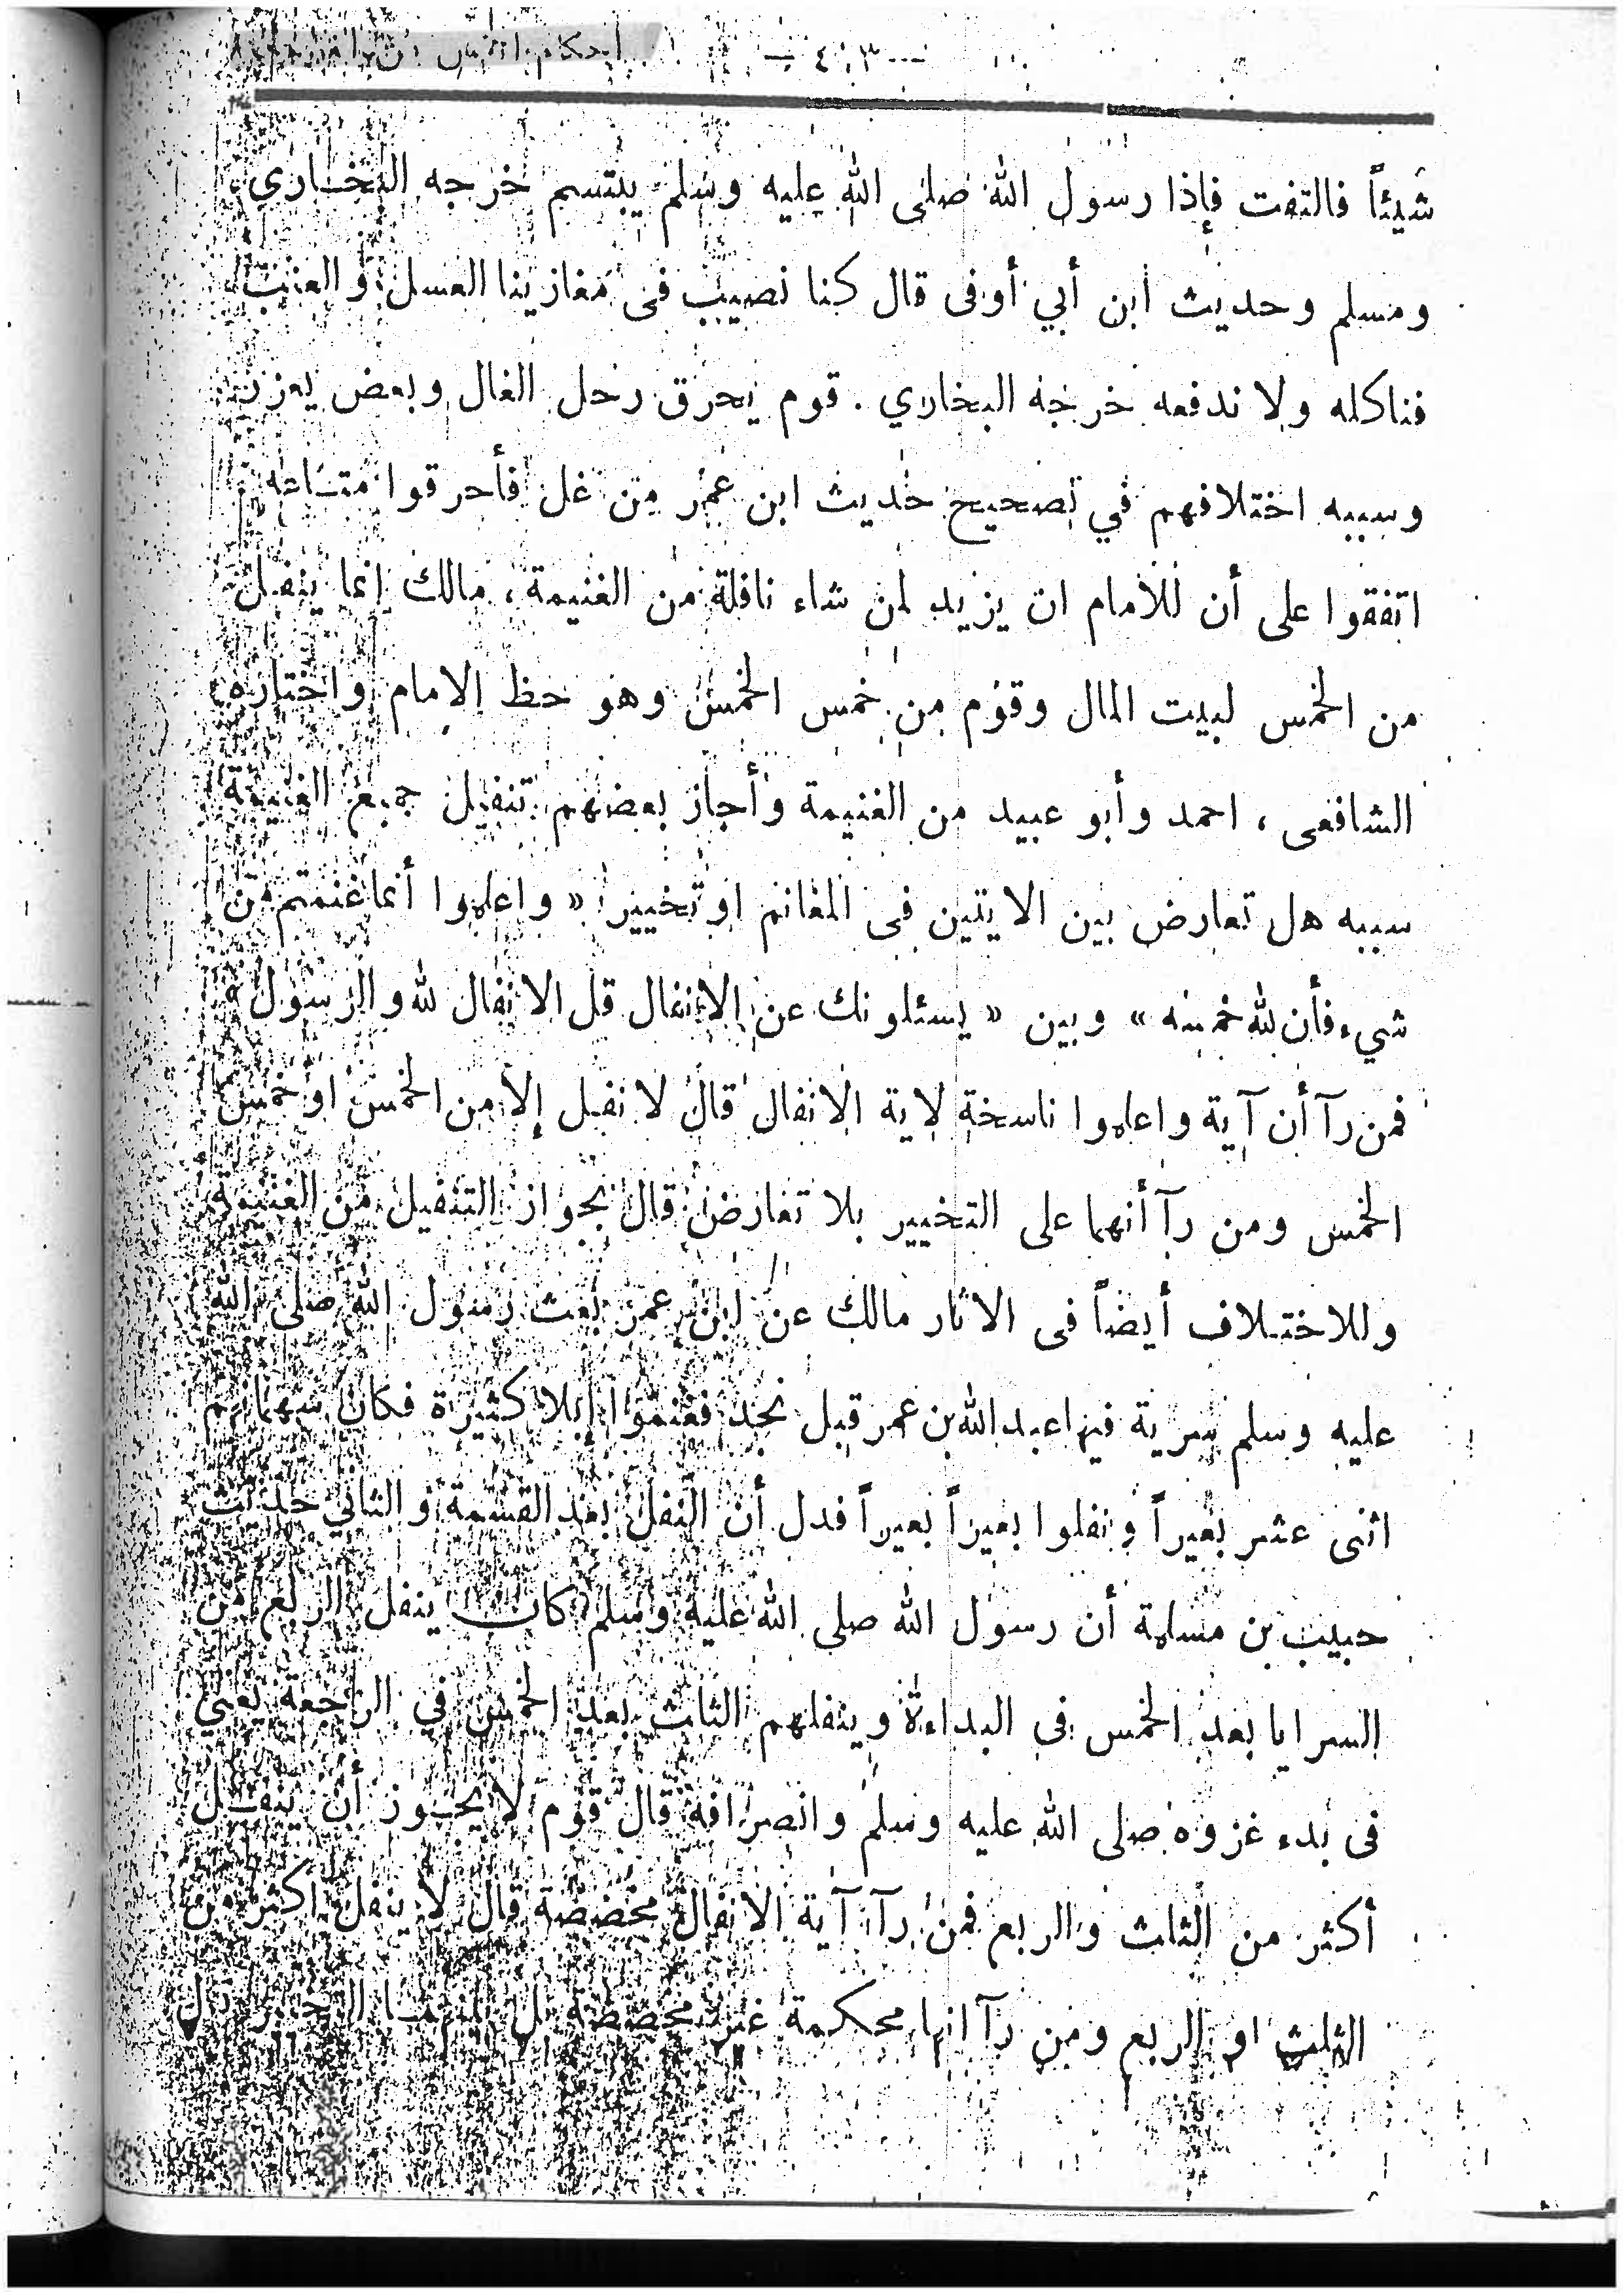 — ٤٠٣ —
شيئاً فالتفت فإذا رسول الله صلى الله عليه وسلم يبتسم خرجه البخاري
ومسلم وحديث ابن أبي أوفى قال كنا نصيب فى مغازينا العسل والعنب
فناكله ولا ندفعه خرجه البخاري . قوم يحرق رحل الغال وبعض يعزر
وسببه اختلافهم في تصحيح حديث ابن عمر من غل فأحرقوا متاعه
اتفقوا على أن للامام ان يزيد لمن شاء نافلة من الغنيمة ، مالك إنما ينفل
من الخمس لبيت المال وقوم من خمس الخمس وهو حظ الامام واختاره
الشافعى ، احمد وأبو عبيد من الغنيمة وأجاز بعضهم تنفيل جميع الغنيمة
سببه هل تعارض بين الايتين فى المغانم او تخيير « واعلموا أنما غنمتم من
شيء فأن لله خمسه » وبين « يسئلونك عن الانفال قل الانفال لله والرسول »
فمن رآ أن آية واعلموا ناسخة لاية الانفال قال لا نفل إلا من الخمس او خمس
الخمس ومن رآ أنهما على التخيير بلا تعارض قال بجواز التنفيل من الغنيمة
وللاختلاف أيضاً فى الاثار مالك عن ابن عمر بعث رسول الله صلى الله
عليه وسلم سرية فيها عبد الله بن عمر قبل نجد فغنموا إبلا كثيرة فكان سهمانهم
اثنى عشر بعيراً ونفلوا بعيراً بعيراً فدل أن النفل بعد القسمة والثاني حديث
حبيب بن مسلمة أن رسول الله صلى الله عليه وسلم كان ينفل الربع من
السرايا بعد الخمس فى البداءة وينفلهم الثلث بعد الخمس في الراجعة يعني
فى بدء غزوه صلى الله عليه وسلم وانصرافه قال قوم لا يجوز أن ينفل
أكثر من الثلث والربع فمن رآ آية الانفال مخصصة قال لا ينفل اكثر من
الثلث او الربع ومن رآ انها محكمة غير مخصصة بل